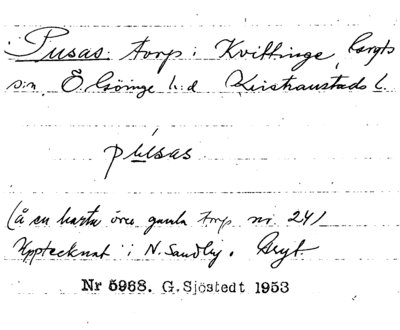 Pusas. torp i Kvittinge, Gryts
s:n Ö. Göinge h:d Kristianstads l.
pusas.
(å en karta över gamla torp nr. 24)
Upptecknat i N. Sandby. Gryt.
Nr 5968. G. Sjöstedt 1953